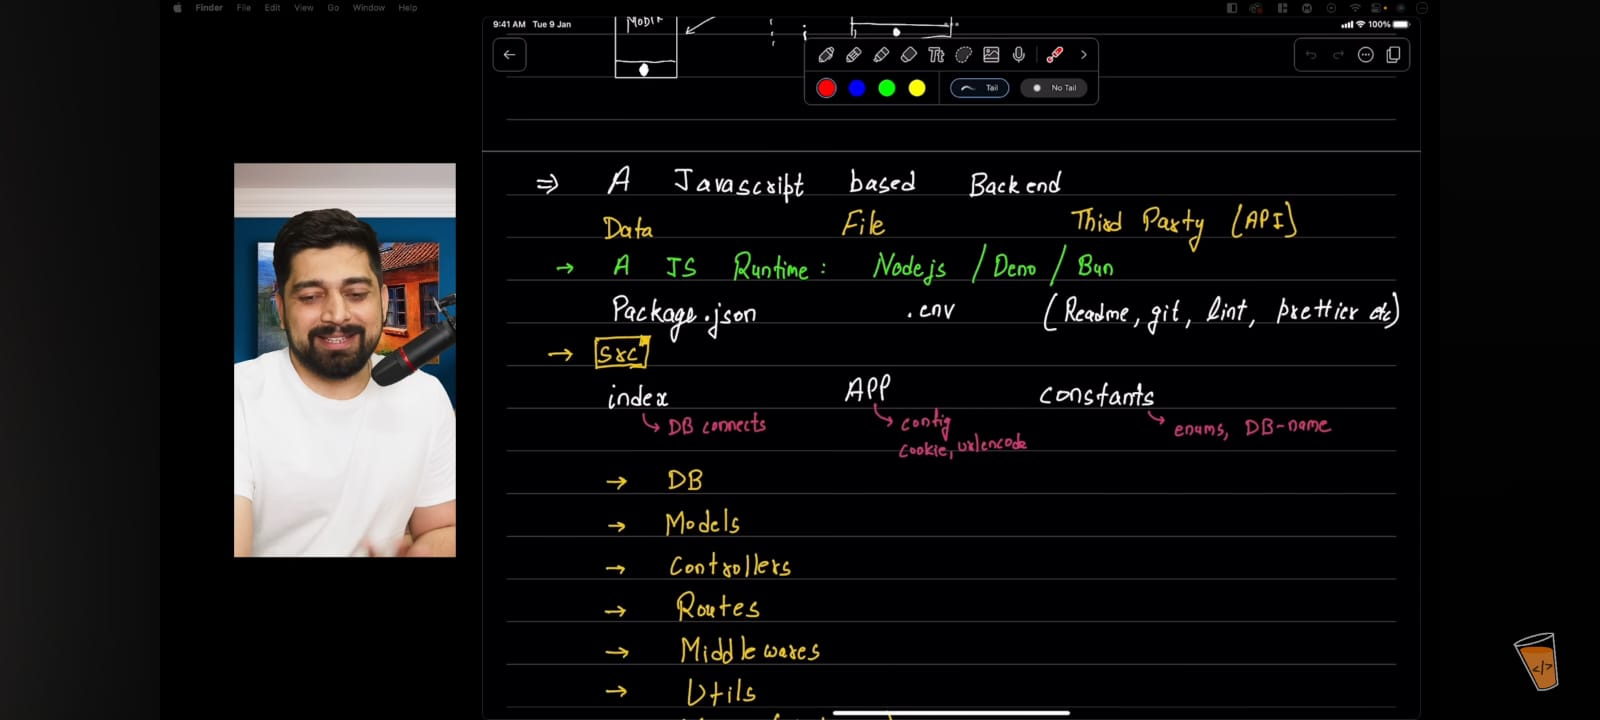 Finder File Edit View Go Window Help
9:41 AM Tue 9 Jan
100%
Tail
No Tail
⇒ A Javascript based Backend
Data File Third Party (API)
→ A JS Runtime: Nodejs / Deno / Bun
Package.json .env (Readme, git, lint, prettier etc)
→ src
index APP constants
DB connects
config
enums, DB-name
cookie, urlencode
→ DB
→ Models
→ Controllers
→ Routes
→ Middlewares
→ Utils